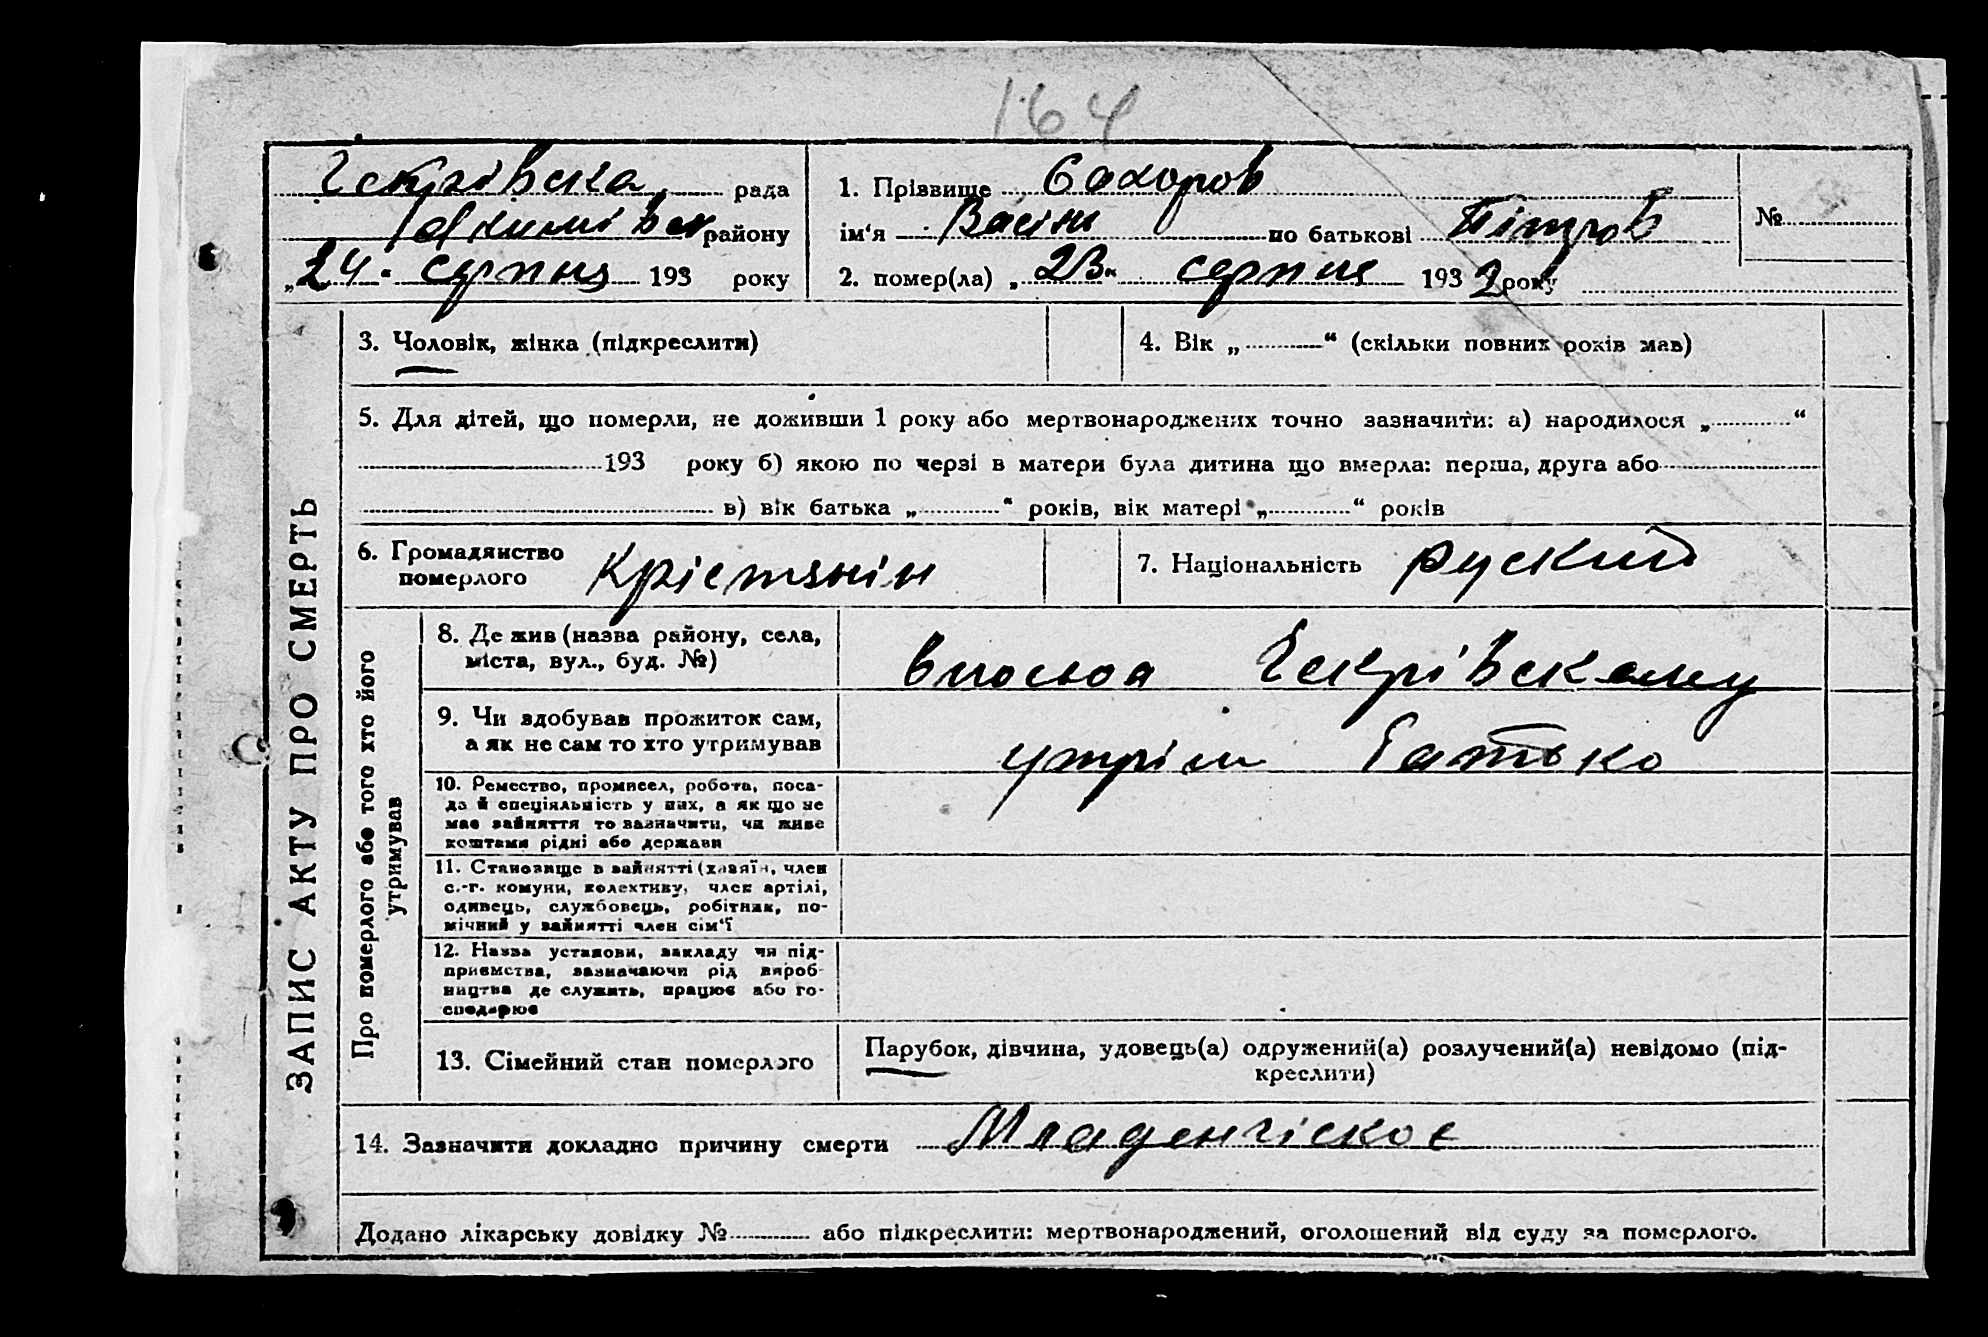 164
рада
1. Прізвище Сахоров
№
району
ім'я Васіли по батькові Пітров
„24" серпня 193 року
2. помер(ла) „23" серпня 1932 року
ЗАПИС АКТУ ПРО СМЕРТЬ
3. Чоловік, жінка (підкреслити)
4. Вік „ “ (скільки повних років мав)
5. Для дітей, що померли, не доживши 1 року або мертвонароджених точно зазначити: а) народилося „ “
193 року б) якою по черзі в матери була дитина що вмерла: перша, друга або
в) вік батька „ “ років, вік матері „ “ років
6. Громадянство
померлого Крієтянін
7. Національність руский
Про померлого або того хто його
утримував
8. Де жив (назва району, села,
міста, вул., буд. №)
9. Чи здобував прожиток сам,
а як не сам то хто утримував
батько
10. Ремество, промисел, робота, поса-
да й спеціяльність у них, а як що не
має зайняття то зазначити, чи живе
коштами рідні або держави
11. Становище в зайнятті (хазяїн, член
с.-г. комуни, колективу, член артілі,
одинець, службовець, робітник, по-
мічний у зайнятті член сім'ї
12. Назва установи, закладу чи під-
приємства, зазначаючи рід вироб-
ництва де служить, працює або го-
сподарює
13. Сімейний стан померлого
Парубок, дівчина, удовець(а) одружений(а) розлучений(а) невідомо (під-
креслити)
14. Зазначити докладно причину смерти Младенчіскоє
Додано лікарську довідку № або підкреслити: мертвонароджений, оголошений від суду за померлого.